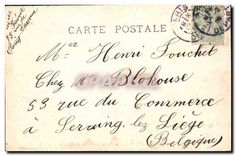 CARTE POSTALE
Mr Henri Fouchet
Chez Mr Blokouse
53 rue du Commerce
à Seraing lez Liège
(Belgique)